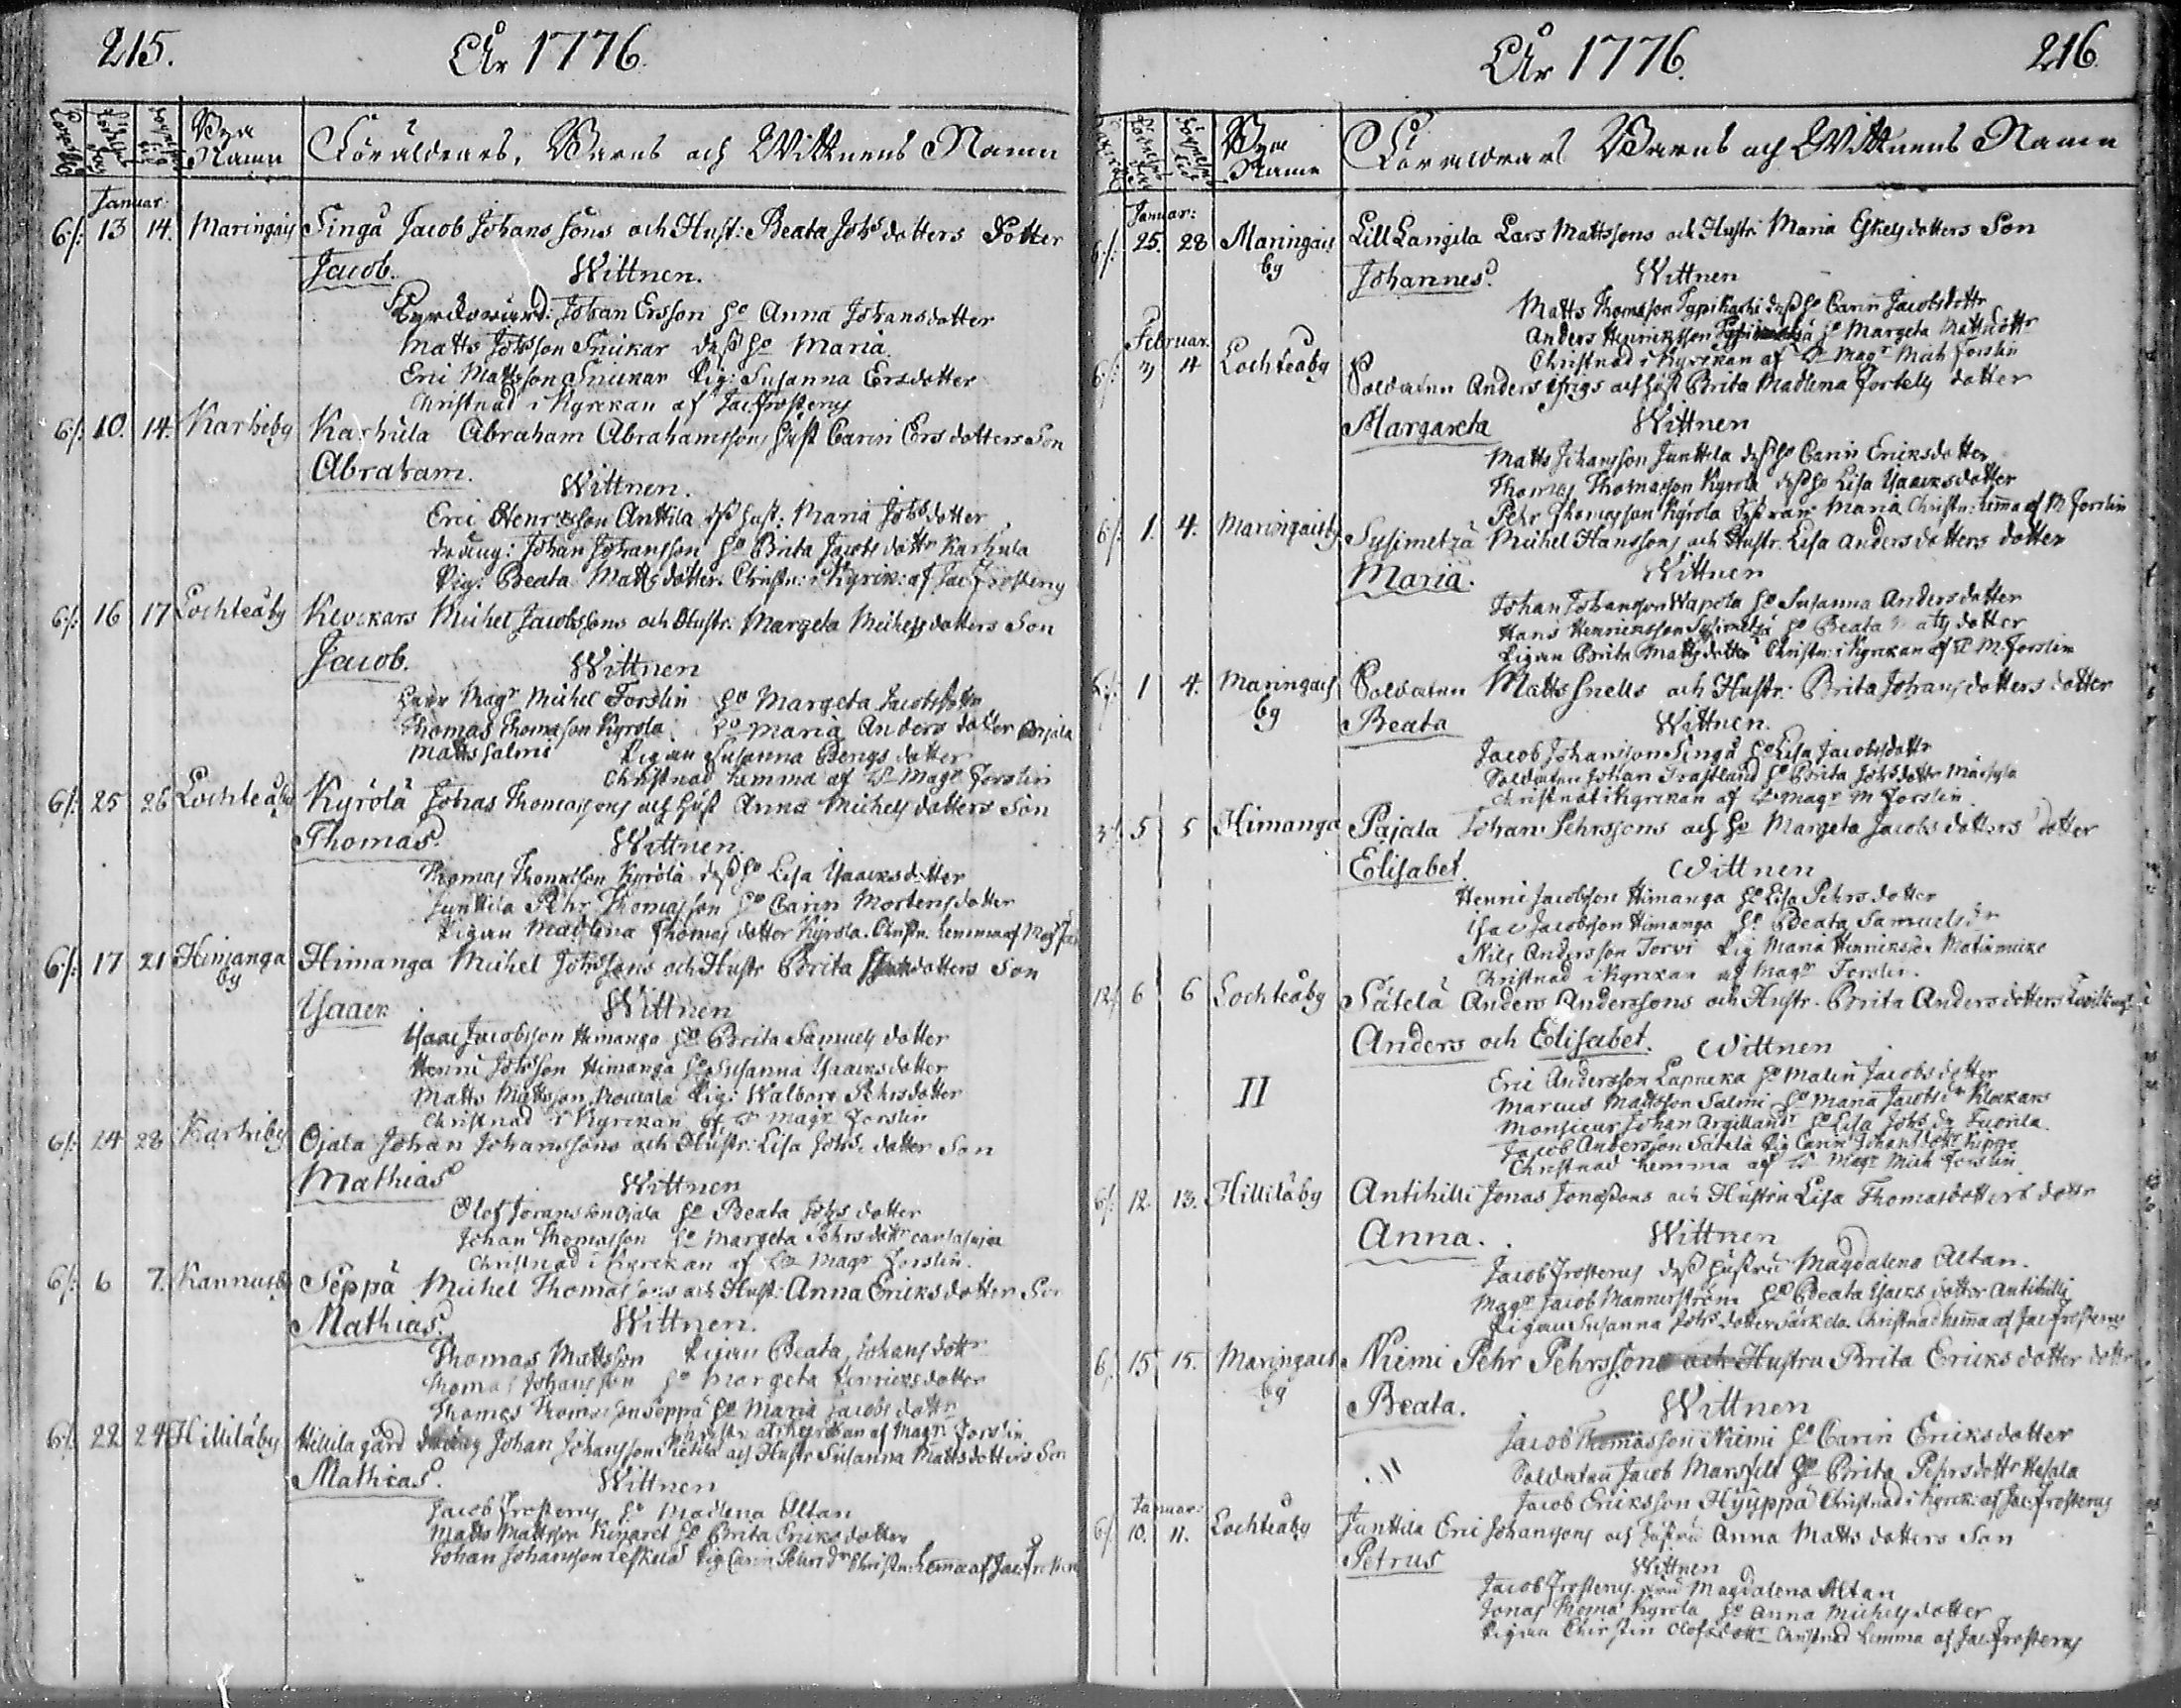 215.
År 1776.
Bya Namn
Föräldrars, Barns och Wittnens Namn
Januar:
6/: 13 14. Maringais Singå Jacob Johans Sons och Hust: Beata Johsdotters Dotter
Jacob. Wittnen.
Johan Ersson ho Anna Johansdotter
Matts Johsson Snickar dess ho Maria
Eric Mattsson Snickar Pig: Susanna Ersdotter
Christnad i Kyrckan af Jac. Frosterus
6/: 10. 14. Karhiby Karhula Abraham Abrahamssons Hust Carin Ersdotters Son
Abraham. Wittnen.
Eric Henricsson Anttila dess hust: Maria Johsdotter
dräng: Johan Johansson ho Brita Jacobsdottr Karhula
Pig: Beata Mattsdotter. Christn: i Kyrck: af Jac Frosterus
6/: 16 17 Lochteåby Klockars Michel Jacobssons och Hustr. Margeta Michelsdotters Son
Jacob. Wittnen
Magr Michel Forslin ho Margeta Jacobsdottr
Thomas Thomasson Kyrola ho Maria Andersdotter
Matts Salmi Pigan Susanna Bengsdotter
Christnad hemma af Magr Forslin
6/: 25 26 Lochteåby Kyrölä Johas Thomassons och hust Anna Michelsdotters Son
Thomas. Wittnen.
Thomas Thomasson Kyrölä dess ho Lisa Isaacksdotter
Junttila Pehr Thomasson ho Carin Mortensdotter
Pigan Madlena Thomasdotter Kyrola. Christn. hemma af Magr
6/: 17 21 Himanga by Himanga Michel Johssons och Hustr Brita dotters Son
Isaack Wittnen
Isaac Jacobsson Himango ho Brita Samuelsdotter
Henric Johsson Himanga ho Susanna Isaacksdotter
Matts Mattsson Pig: Walborg Pehrsdotter
Christnad i Kyrckan af Magr Forslin
6/: 24 28 Karhiby Ojala Johan Johanssons och Hustr: Lisa Johsdotter Son
Mathias Wittnen
Olof Joransson Ojala ho Beata Johsdotter
Johan Thomasson ho Margeta Pehrsdottr
Christnad i Kyrckan af Magr Forslin.
6/: 6 7. Kannusby Seppä Michel Thomassons och Hust: Anna Ericksdotter Son
Mathias. Wittnen.
Thomas Mattsson Pigan Beata Johansdottr
Thomas Johansson ho Margeta Henricksdotter
Thomas Thomasson Seppä ho Maria Jacobsdottr
Christn at Kyrckan af Magr. Forslin
6/: 22 24 Hillilåby Hillila gård Johan Johansson Pietilä och Hustr Susanna Mattsdotters Son
Mathias. Wittnen
Jacob Frosterus ho Madlena Altan
Matts Mattsson ho Brita Ericksdotter
Johan Johansson Leskelä Pig Carin Pehrsdr Christn: hemma af Jac: Frosterus
År 1776. 216.
Bya Namn
Föräldrars Barns och Wittnens Namn
Januar:
6/: 25. 28 Maringais by Lill Langila Lars Mattssons och Hustr: Maria Eskelsdotters Son
Johannes. Wittnen
Matts Thomasson Typikoski dess ho Carin Jacobsdottr
Anders Henricksson ho Margeta Mattsdottr
Christnad i Kyrckan af Magr Mich Forslin
Februar.
6/: 3 4 Lochteåby Soldaten Anders Yrigs och hust Brita Madlena Fortells dotter
Margareta Wittnen
Matts Johansson Junttila dess ho Carin Ericksdotter
Thomas Thomasson Kyrola dess ho Lisa Isaacksdotter
Pehr Thomasson Kyrola Maria Christn: hemma af M Forslin
6/: 1. 4. Maringaisby Sysimetzä Michel Hanssons och Hustr. Lisa Andersdotters dotter
Maria. Wittnen
Johan Johansson Wapola ho Susanna Andersdotter
Hans Henricksson Sysimetzä ho Beata Matsdotter
Pigan Brita Mattsdotter Christn: i Kyrckan af M. Forslin
6/: 1 4. Maringais by Soldaten Matts Snells och Hustr: Brita Johansdotters dotter
Beata Wittnen.
Jacob Johansson Singå ho Lisa Jacobsdottr
Soldaten Johan ho Brita Johsdottr
Christnat i Kyrckan af Magr M Forslin
5 5 Himanga Pajala Johan Pehrssons och ho Margeta Jacobsdotters dotter
Elisabet. Wittnen
Henric Jacobsson Himanga ho Lisa Pehrsdotter
Isac Jacobsson Himanga ho Beata Samuelsdr
Nils Andersson Torvi Pig Maria Henricksdr
Christnad i Kyrckan af Magr Forslin.
12/: 6 6 Lochteåby Sätelä Anders Anderssons och Hustr. Brita Andersdotters Twillingar
Anders och Elisabet. Wittnen
II
Eric Andersson ho Malin Jacobsdotter
Marcus Mattsson Salmi ho Maria Jacobsdr Klockars
Monsieur Johan Argilland ho Lisa Johsdr
Jacob Andersson Sätelä Pig Carin Johansdottr
Christnad hemma af Magr Mich Forslin
6/: 12. 13. Hillilåby Antihilli Jonas Jonassons och Hustru Lisa Thomasdotters dottr
Anna. Wittnen
Jacob Frosterus dess hustru Magdalena Altan.
Magr Jacob Mannerström ho Beata Isacksdotter Antihilli
Pigan Susanna Johsdotter Särkela. Christnad hemma af Jac Frosterus
6/: 15 15. Maringais by Niemi Pehr Pehrssons och Hustru Brita Ericksdotter dottr
Beata. Wittnen
Jacob Thomasson Niemi ho Carin Ericksdotter
Soldaten Jacob Marsfelt ho Brita Pehrsdottr
Jacob Ericksson Hyyppä Christnad i Kyrck: af Jac: Frosterus
Januar:
6/: 10. 11. Lochteåby Junttila Eric Johanssons och hustru Anna Mattsdotters Son
Petrus Wittnen
Jacob Frosterus fru Magdalena Altan
Jonas Thoma Kyrola ho Anna Michelsdotter
Pigan Chirstin Olofsdottr Christnad hemma af Jac Frosterus